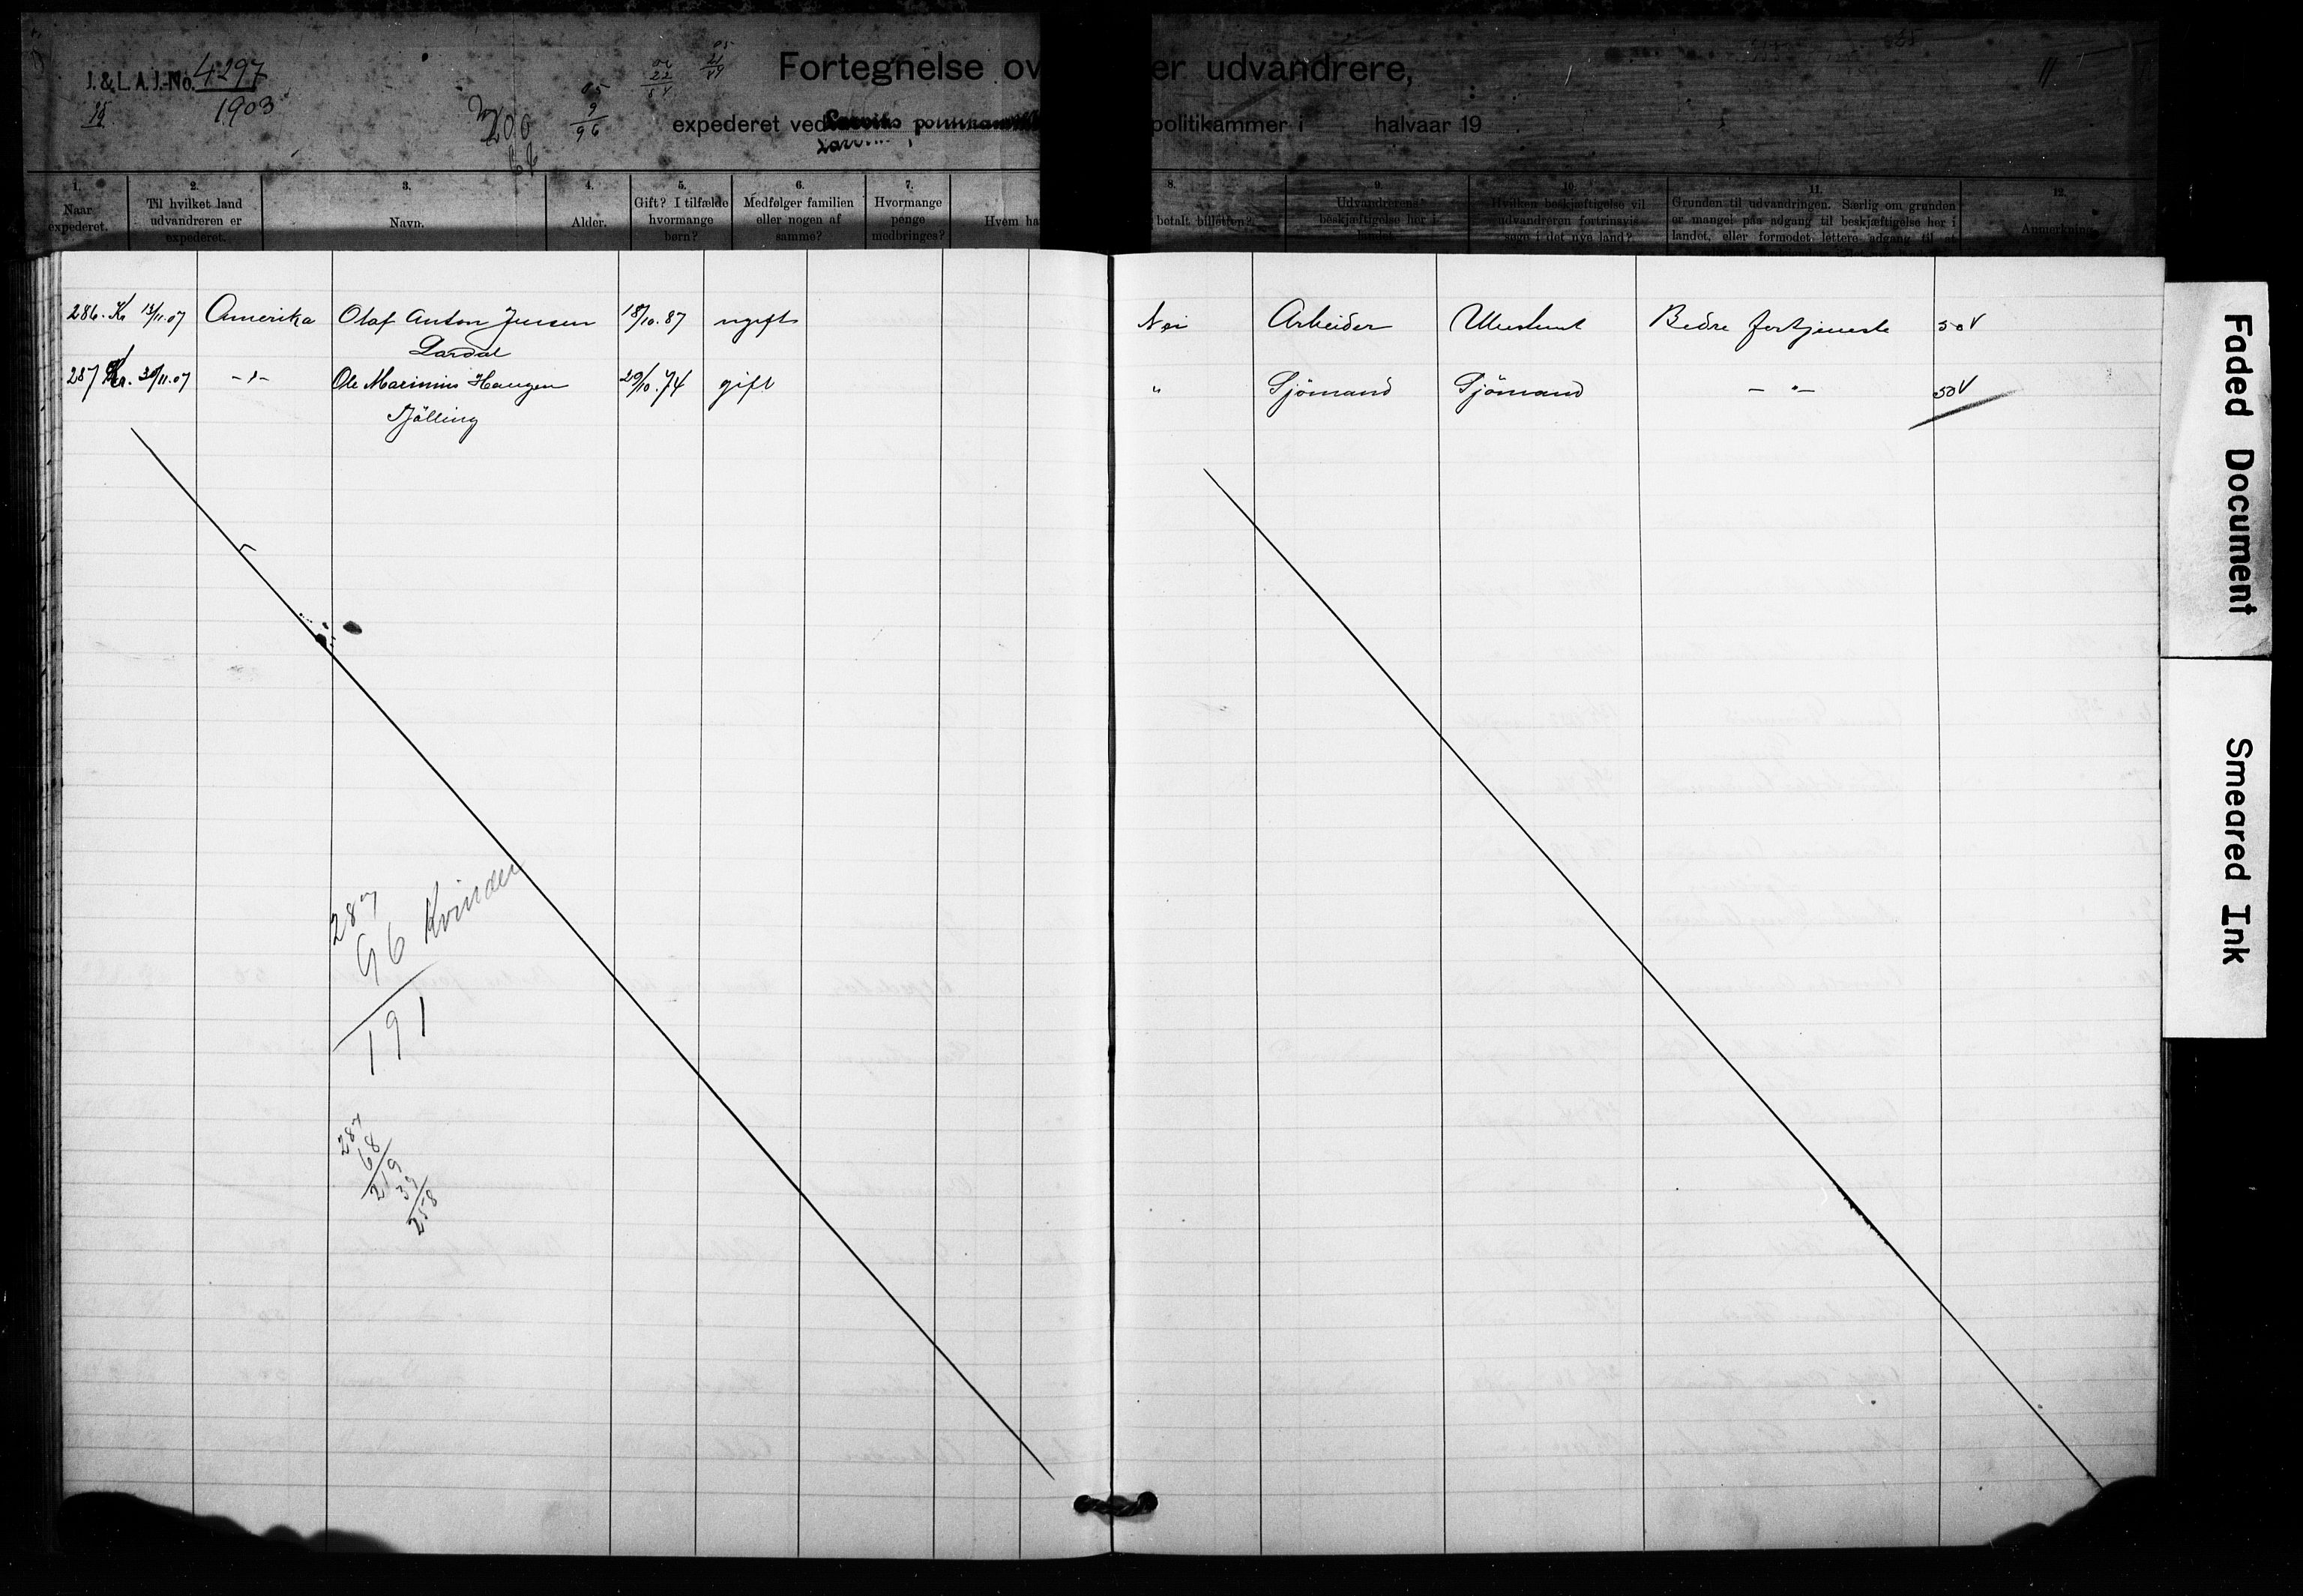 J. & L. A. J.-No. 4297
1903
15
200
05
9
96
06
22
84
05
21
84
Fortegnelse ov er udvandrere,
expederet ved Larviks politikammer politikammer i halvaar 19
1.
Naar expederet.
2.
Til hvilket land udvandreren er expederet.
3.
Navn.
4.
Alder.
5.
Gift? I tilfælde hvormange børn?
6.
Medfølger familien eller nogen af samme?
7.
Hvormange penge medbringes?
Hvem ha
8.
betalt billetten?
9.
Udvandrerens beskjæftigelse her i landet.
10.
Hvilken beskjæftigelse vil udvandreren fortrinsvis søge i det nye land?
11.
Grunden til udvandringen. Særlig om grunden er mangel paa adgang til beskjæftigelse her i landet, eller formodet lettere adgang til at
12.
Anmerkning.
286. Kr 13/11.07 Amerika Olaf Anton Jensen 18/10.87 ugift Nei Arbeider Ubestemt Bedre fortjeneste 50 V
Lardal
287 Kr. 30/11.07 -"- Ole Marinius Haugen 29/10.74 gift " Sjömand Sjömand - " - 50 V
Tjölling
287
96 Kvinder
191
287
68
219
39
258
Faded Document
Smeared Ink